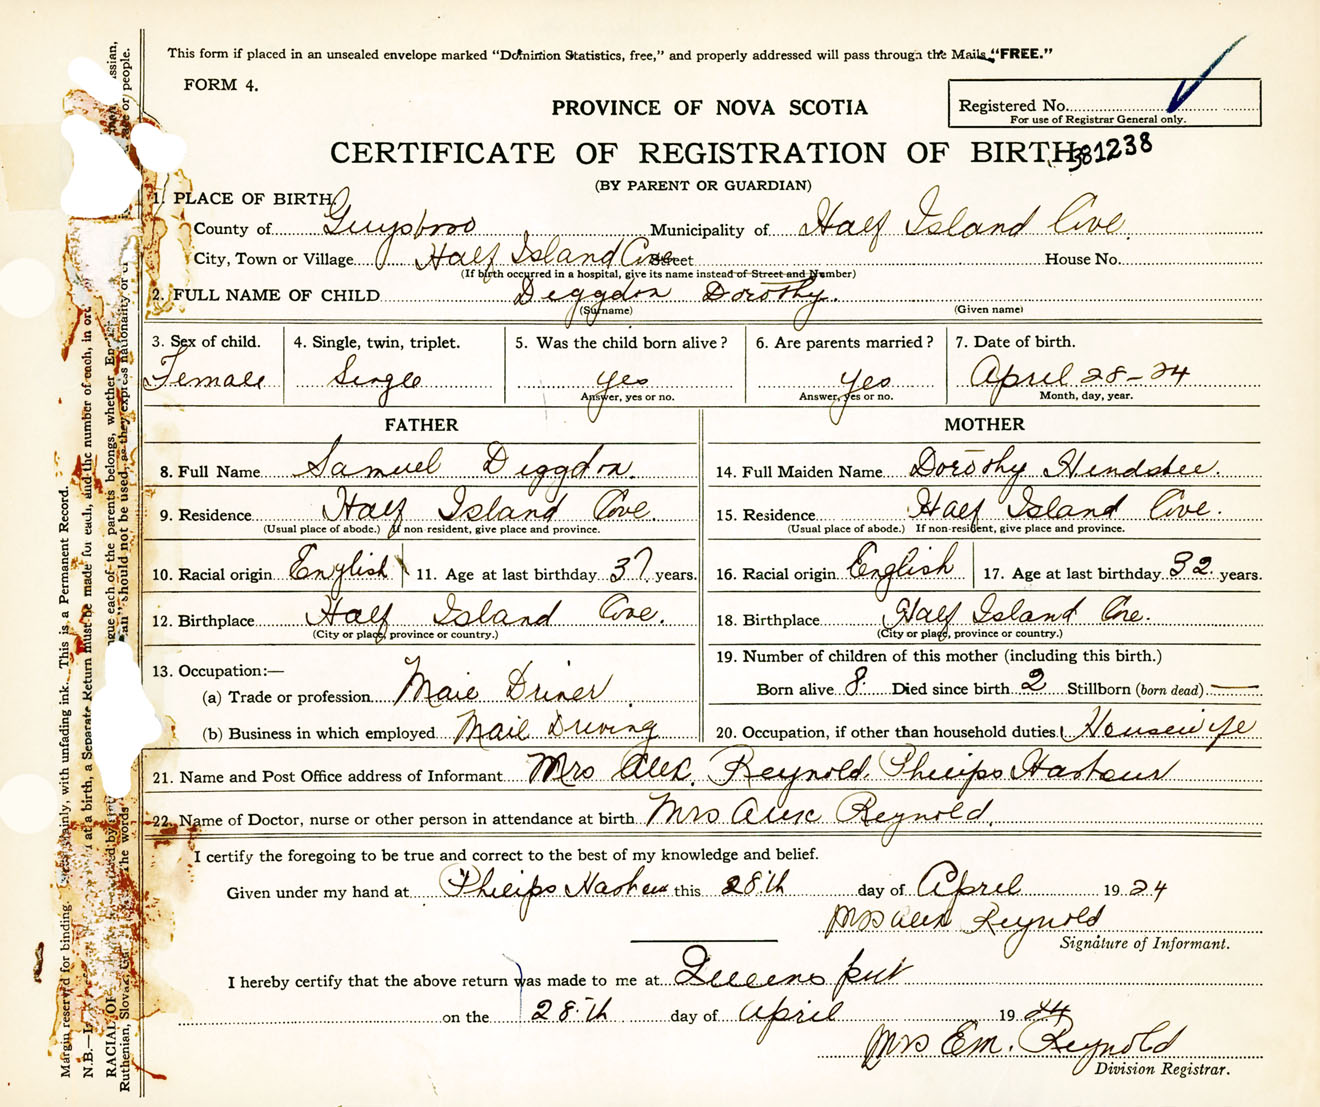 This form if placed in an unsealed envelope marked "Dominion Statistics, free," and properly addressed will pass through the Mails "FREE."
FORM 4.
PROVINCE OF NOVA SCOTIA
Registered No.
For use of Registrar General only.
CERTIFICATE OF REGISTRATION OF BIRTH
381238
(BY PARENT OR GUARDIAN)
1. PLACE OF BIRTH
County of Guysboro Municipality of Half Island Cove.
City, Town or Village Half Island Cove Street House No.
(If birth occurred in a hospital, give its name instead of Street and Number)
2. FULL NAME OF CHILD Deggdon Dorothy.
(Surname) (Given name)
3. Sex of child. 4. Single, twin, triplet. 5. Was the child born alive? 6. Are parents married? 7. Date of birth.
Female Single yes yes April 28-24
Answer, yes or no. Answer, yes or no. Month, day, year.
FATHER MOTHER
8. Full Name Samuel Deggdon. 14. Full Maiden Name Dorothy Hendsbee.
9. Residence Half Island Cove. 15. Residence Half Island Cove.
(Usual place of abode.) If non-resident, give place and province. (Usual place of abode.) If non-resident, give place and province.
10. Racial origin English 11. Age at last birthday 37 years. 16. Racial origin English 17. Age at last birthday 32 years.
12. Birthplace Half Island Cove. 18. Birthplace Half Island Cove.
(City or place, province or country.) (City or place, province or country.)
13. Occupation:— 19. Number of children of this mother (including this birth.)
(a) Trade or profession Mail Driver Born alive 8 Died since birth 2 Stillborn (born dead) —
(b) Business in which employed Mail Driving 20. Occupation, if other than household duties Housewife
21. Name and Post Office address of Informant Mrs Alex. Reynold. Phillips Harbour
22. Name of Doctor, nurse or other person in attendance at birth Mrs Alex Reynold.
I certify the foregoing to be true and correct to the best of my knowledge and belief.
Given under my hand at Phillips Harbour this 28th day of April 1924
Mrs Alex Reynold
Signature of Informant.
I hereby certify that the above return was made to me at Queensport
on the 28th day of April 1924
Mrs Em. Reynold
Division Registrar.
Margin reserved for binding. plainly, with unfading ink. This is a Permanent Record.
N.B.— at a birth, a Separate Return must be made for each, and the number of each, in
RACIAL the parents belongs, whether
Ruthenian, "should not be used, as they express nationality or people.